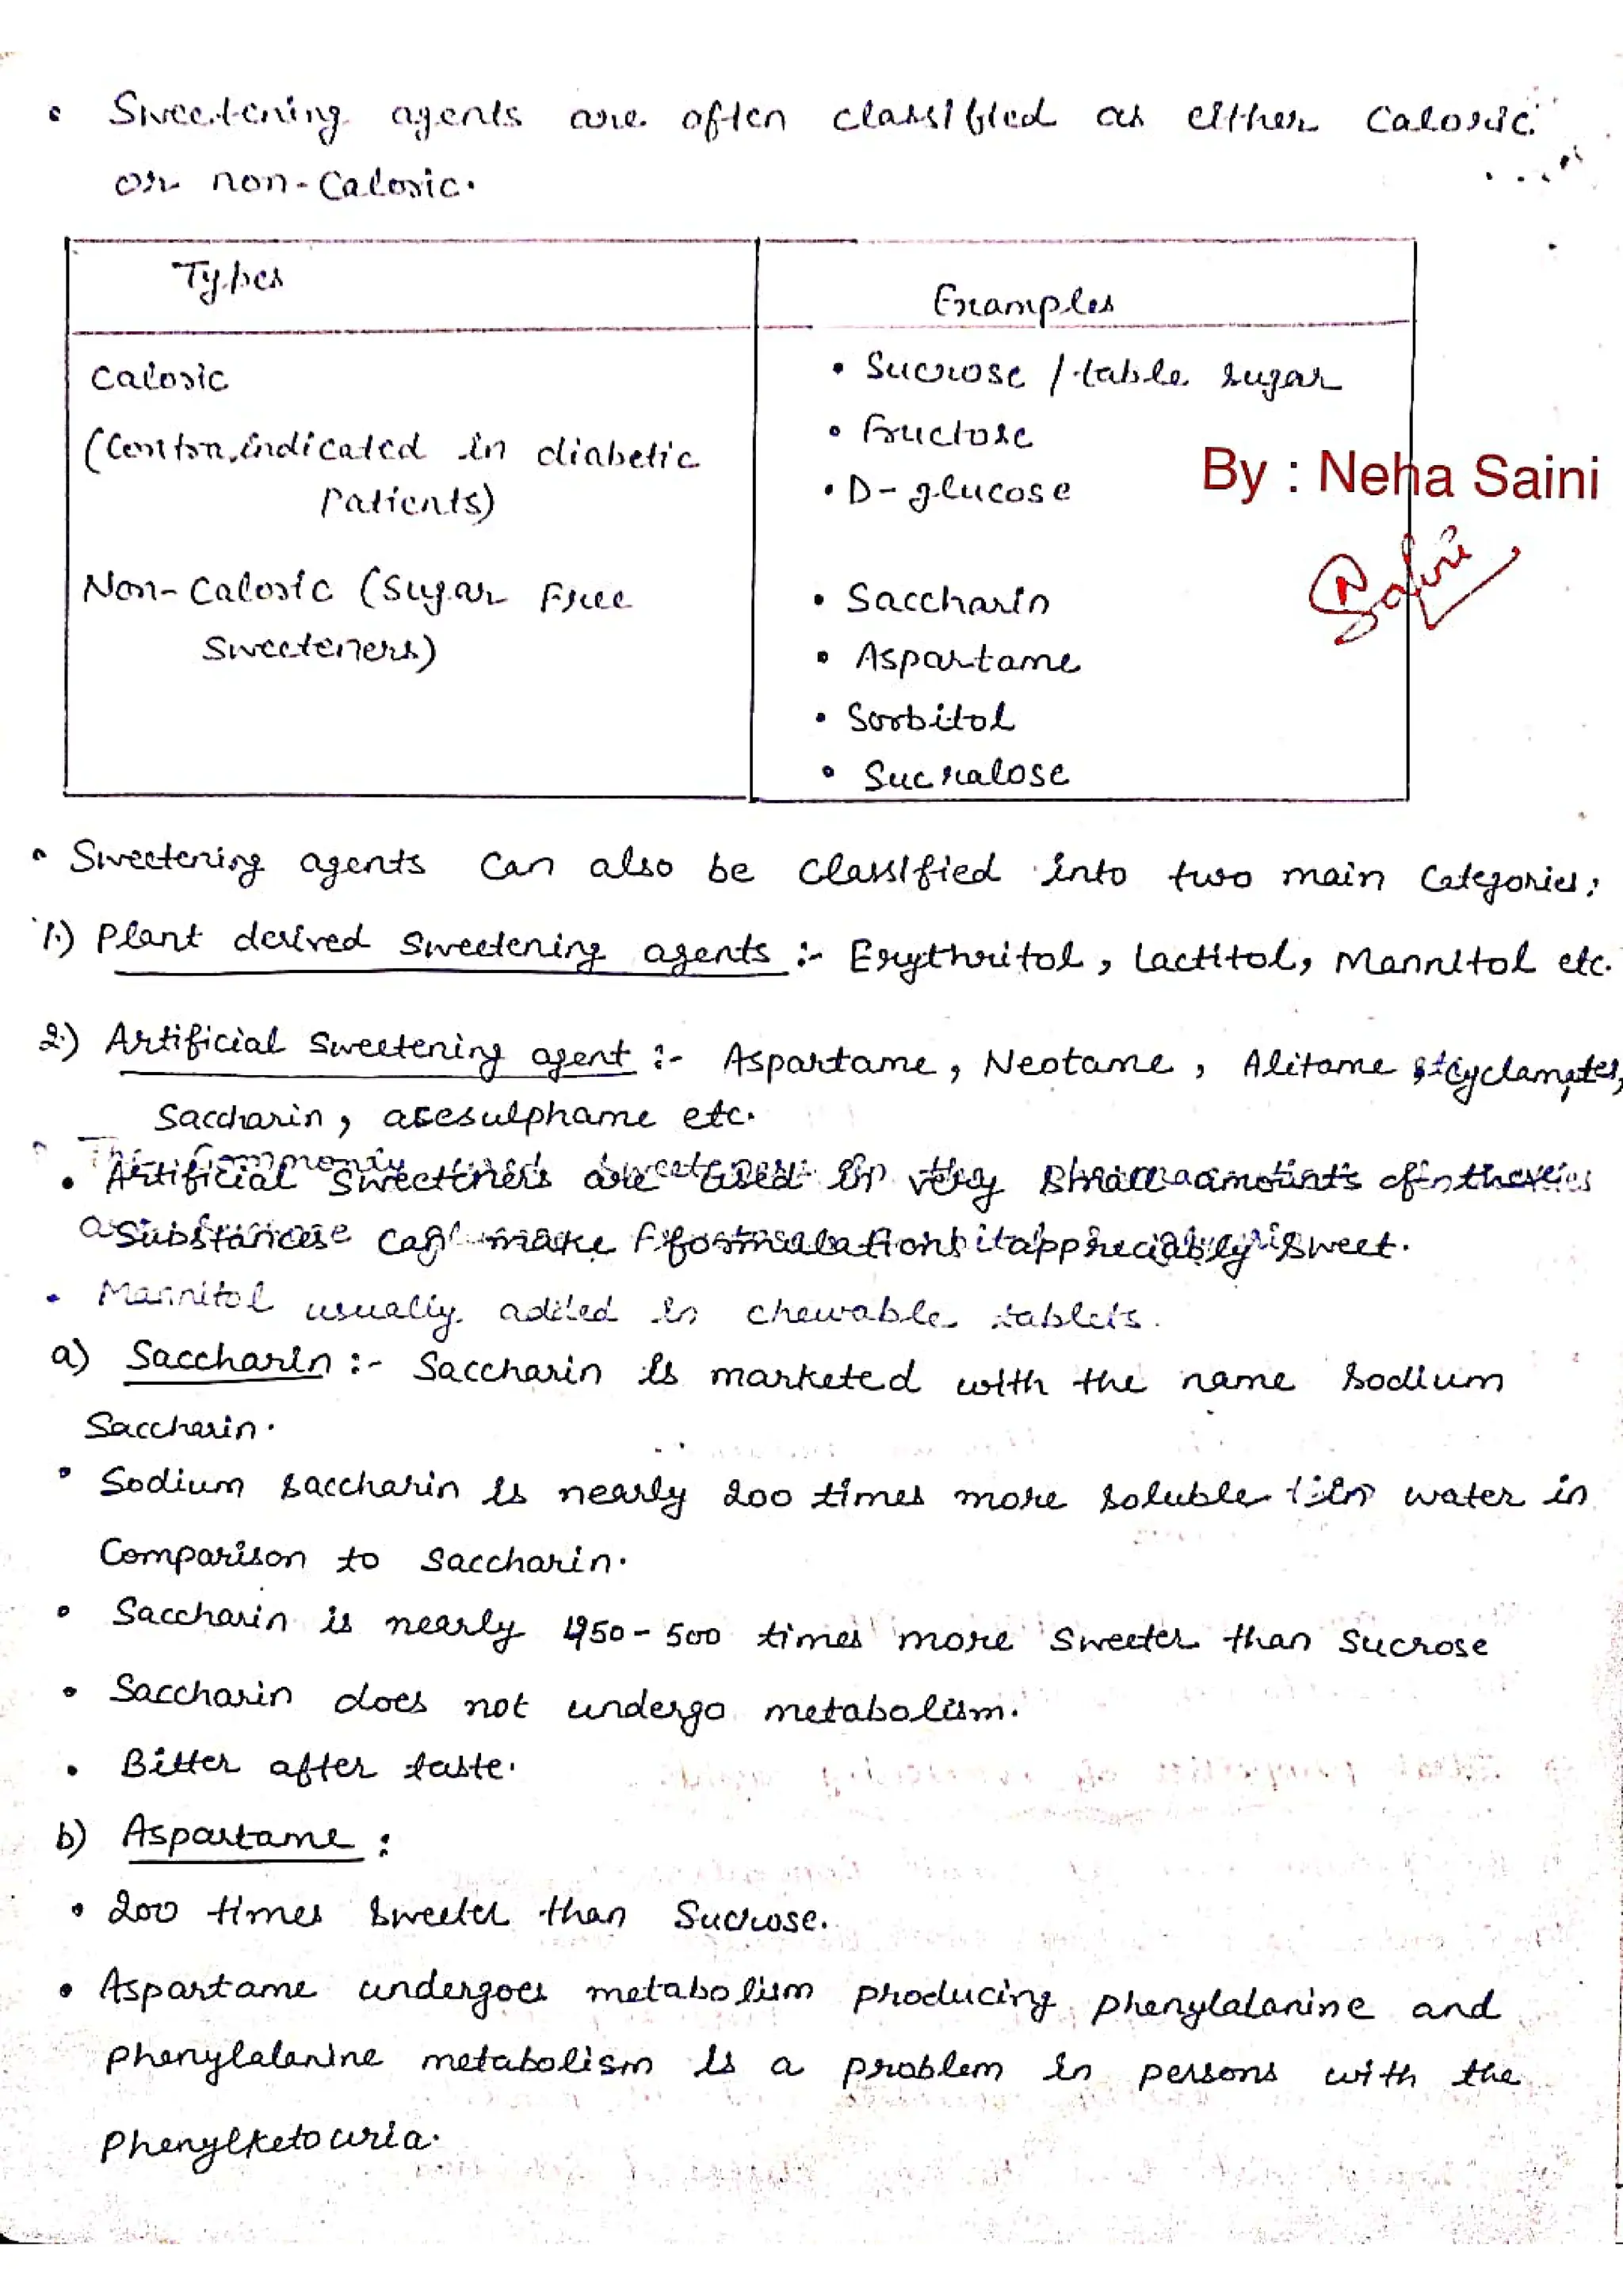 • Sweetening agents are often classified as either Caloric
or non-Caloric.
Types
Examples
Caloric
(Contra,indicated in diabetic
Patients)
• Sucrose / table sugar
• Fructose
• D-glucose
By : Neha Saini
NSaini
Non-Caloric (Sugar Free
Sweeteners)
• Saccharin
• Aspartame
• Sorbitol
• Sucralose
• Sweetening agents can also be classified into two main Categories:
1.) Plant derived sweetening agents :- Erythritol, Lactitol, Mannitol etc.
2.) Artificial sweetening agent :- Aspartame, Neotame, Alitame, cyclamates,
Saccharin, acesulphame etc.
• Artificial sweetners are used in very small amounts
Substances can make formulations appreciably sweet.
• Mannitol usually added in chewable tablets.
a) Saccharin :- Saccharin is marketed with the name Sodium
Saccharin.
• Sodium saccharin is nearly 200 times more soluble in water in
Comparison to saccharin.
• Saccharin is nearly 450-500 times more sweeter than sucrose
• Saccharin does not undergo metabolism.
• Bitter after taste.
b) Aspartame :
• 200 times sweeter than Sucrose.
• Aspartame undergoes metabolism producing phenylalanine and
phenylalanine metabolism is a problem in persons with the
Phenylketouria.